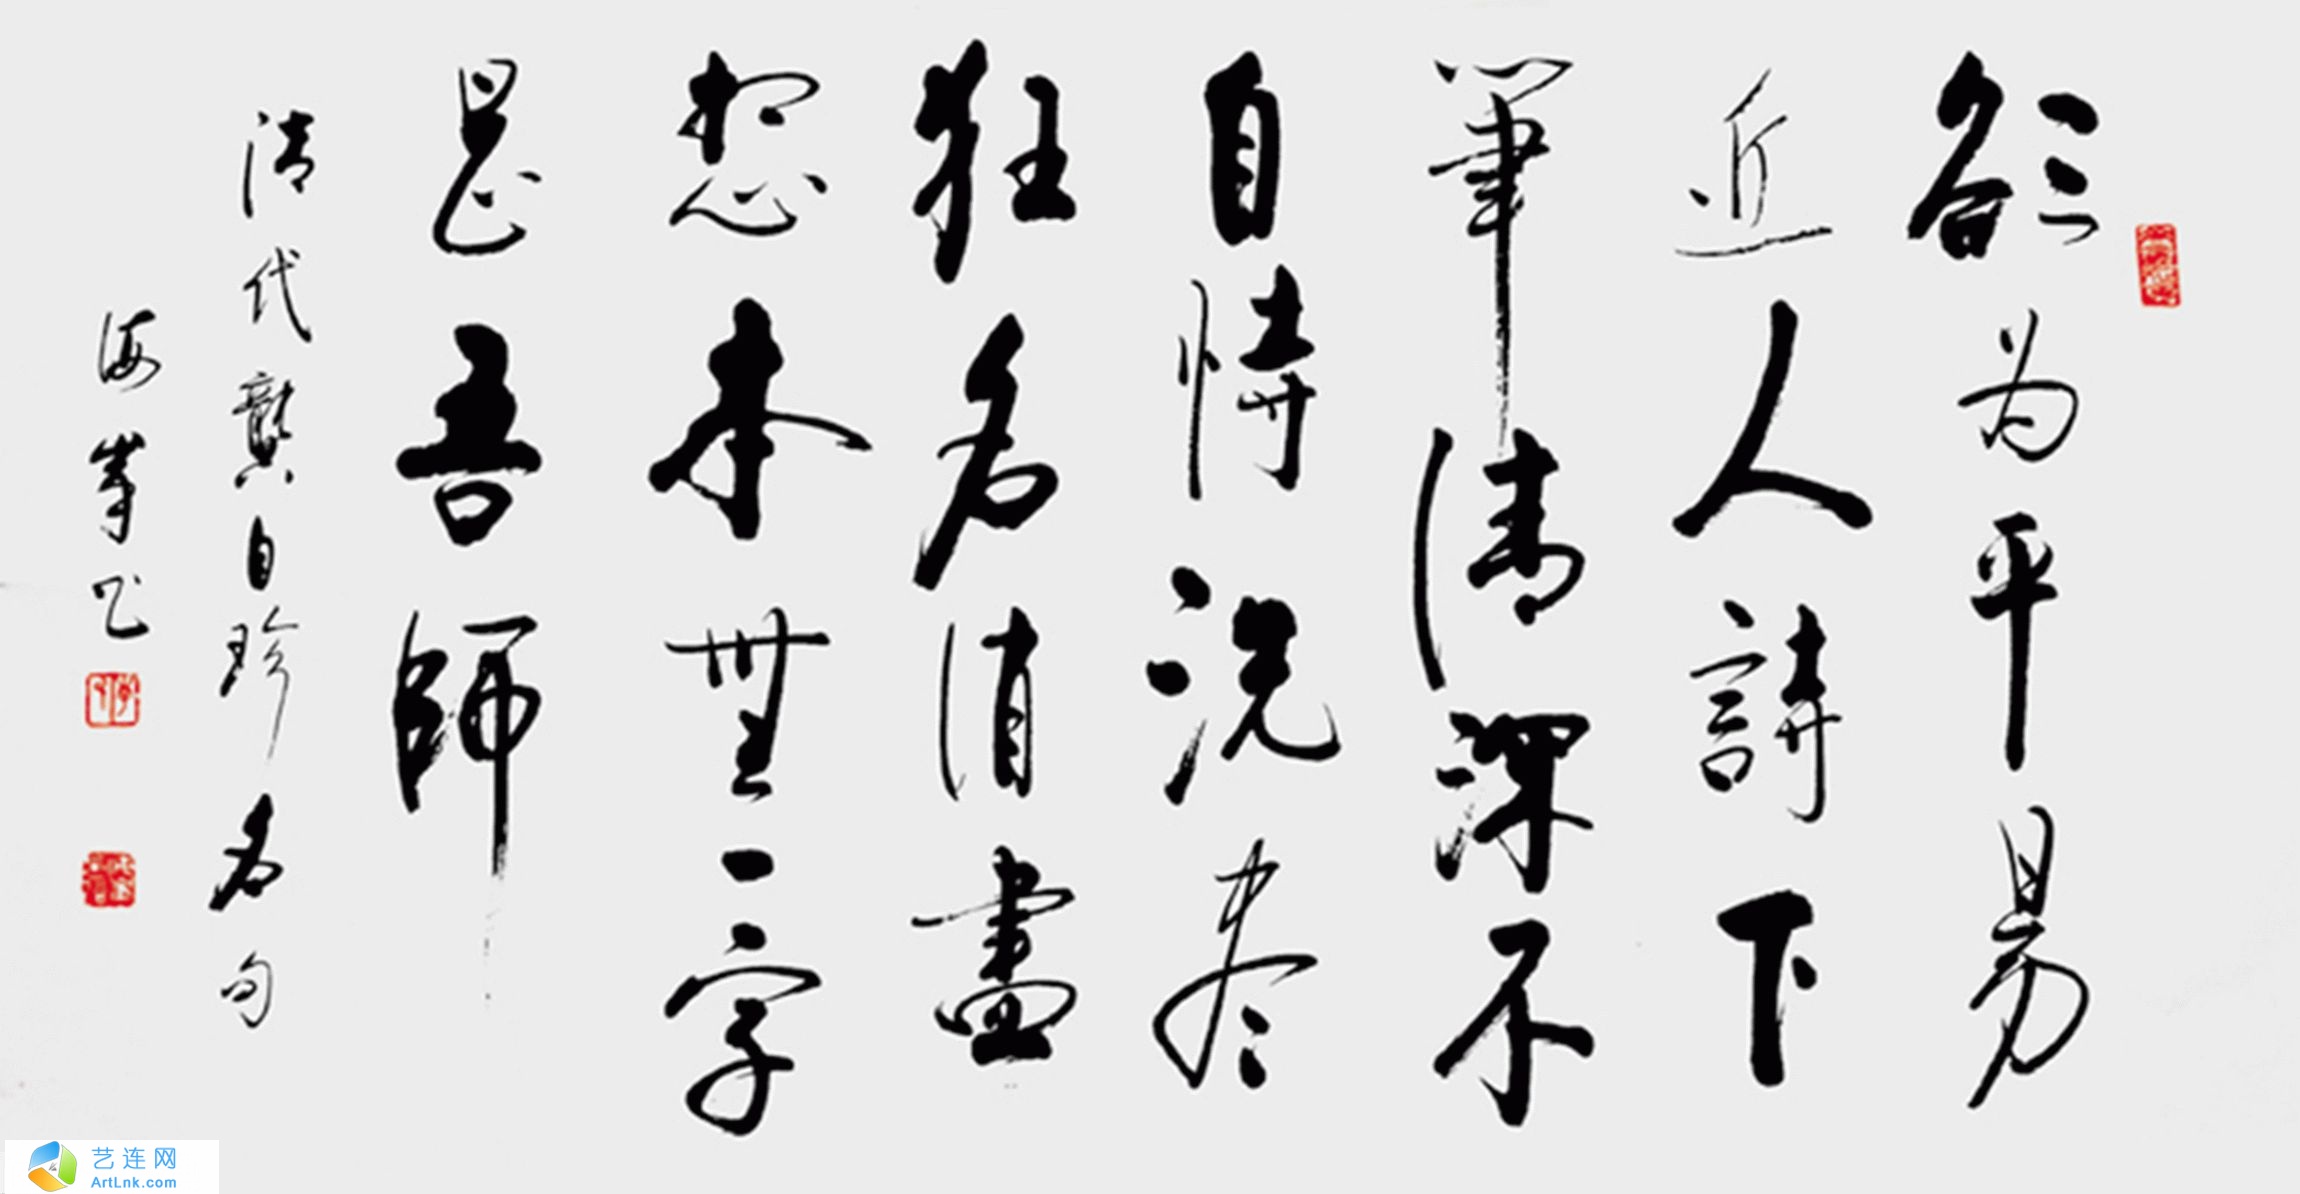 欲为平易
近人詩下
筆清深不
自恃洗尽
狂名消盡
想本無一字
是吾師
清代龔自珍名句
海峯书
艺连网
ArtLnk.com